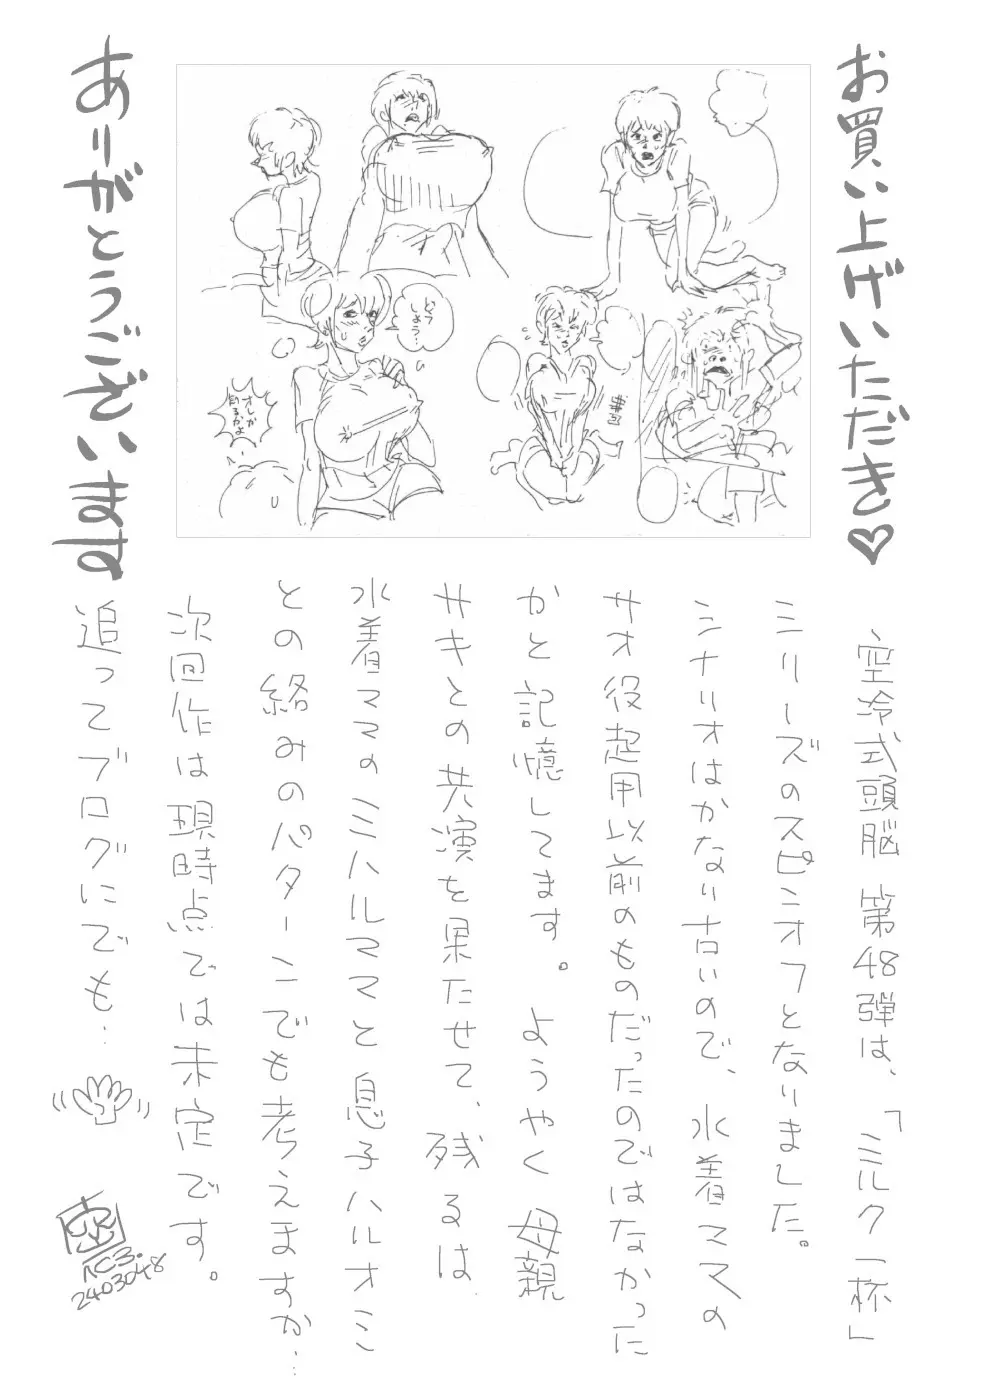 お買い上げいただき♡
ありがとうございます
どうしょう…
オレが
空冷式頭脳 第48弾は、「ミルク一杯」
シリーズのスピンオフとなりました。
シナリオはかなり古いので、水着ママの
サオ役起用以前のものだったのではなかった
かと記憶してます。ようやく 母親
サキとの共演を果たせて、残るは
水着ママのミハルママと息子ハルオミ
との絡みのパターンでも考えますか…
次回作は現時点では未定です。
追ってブログにでも…
2403048